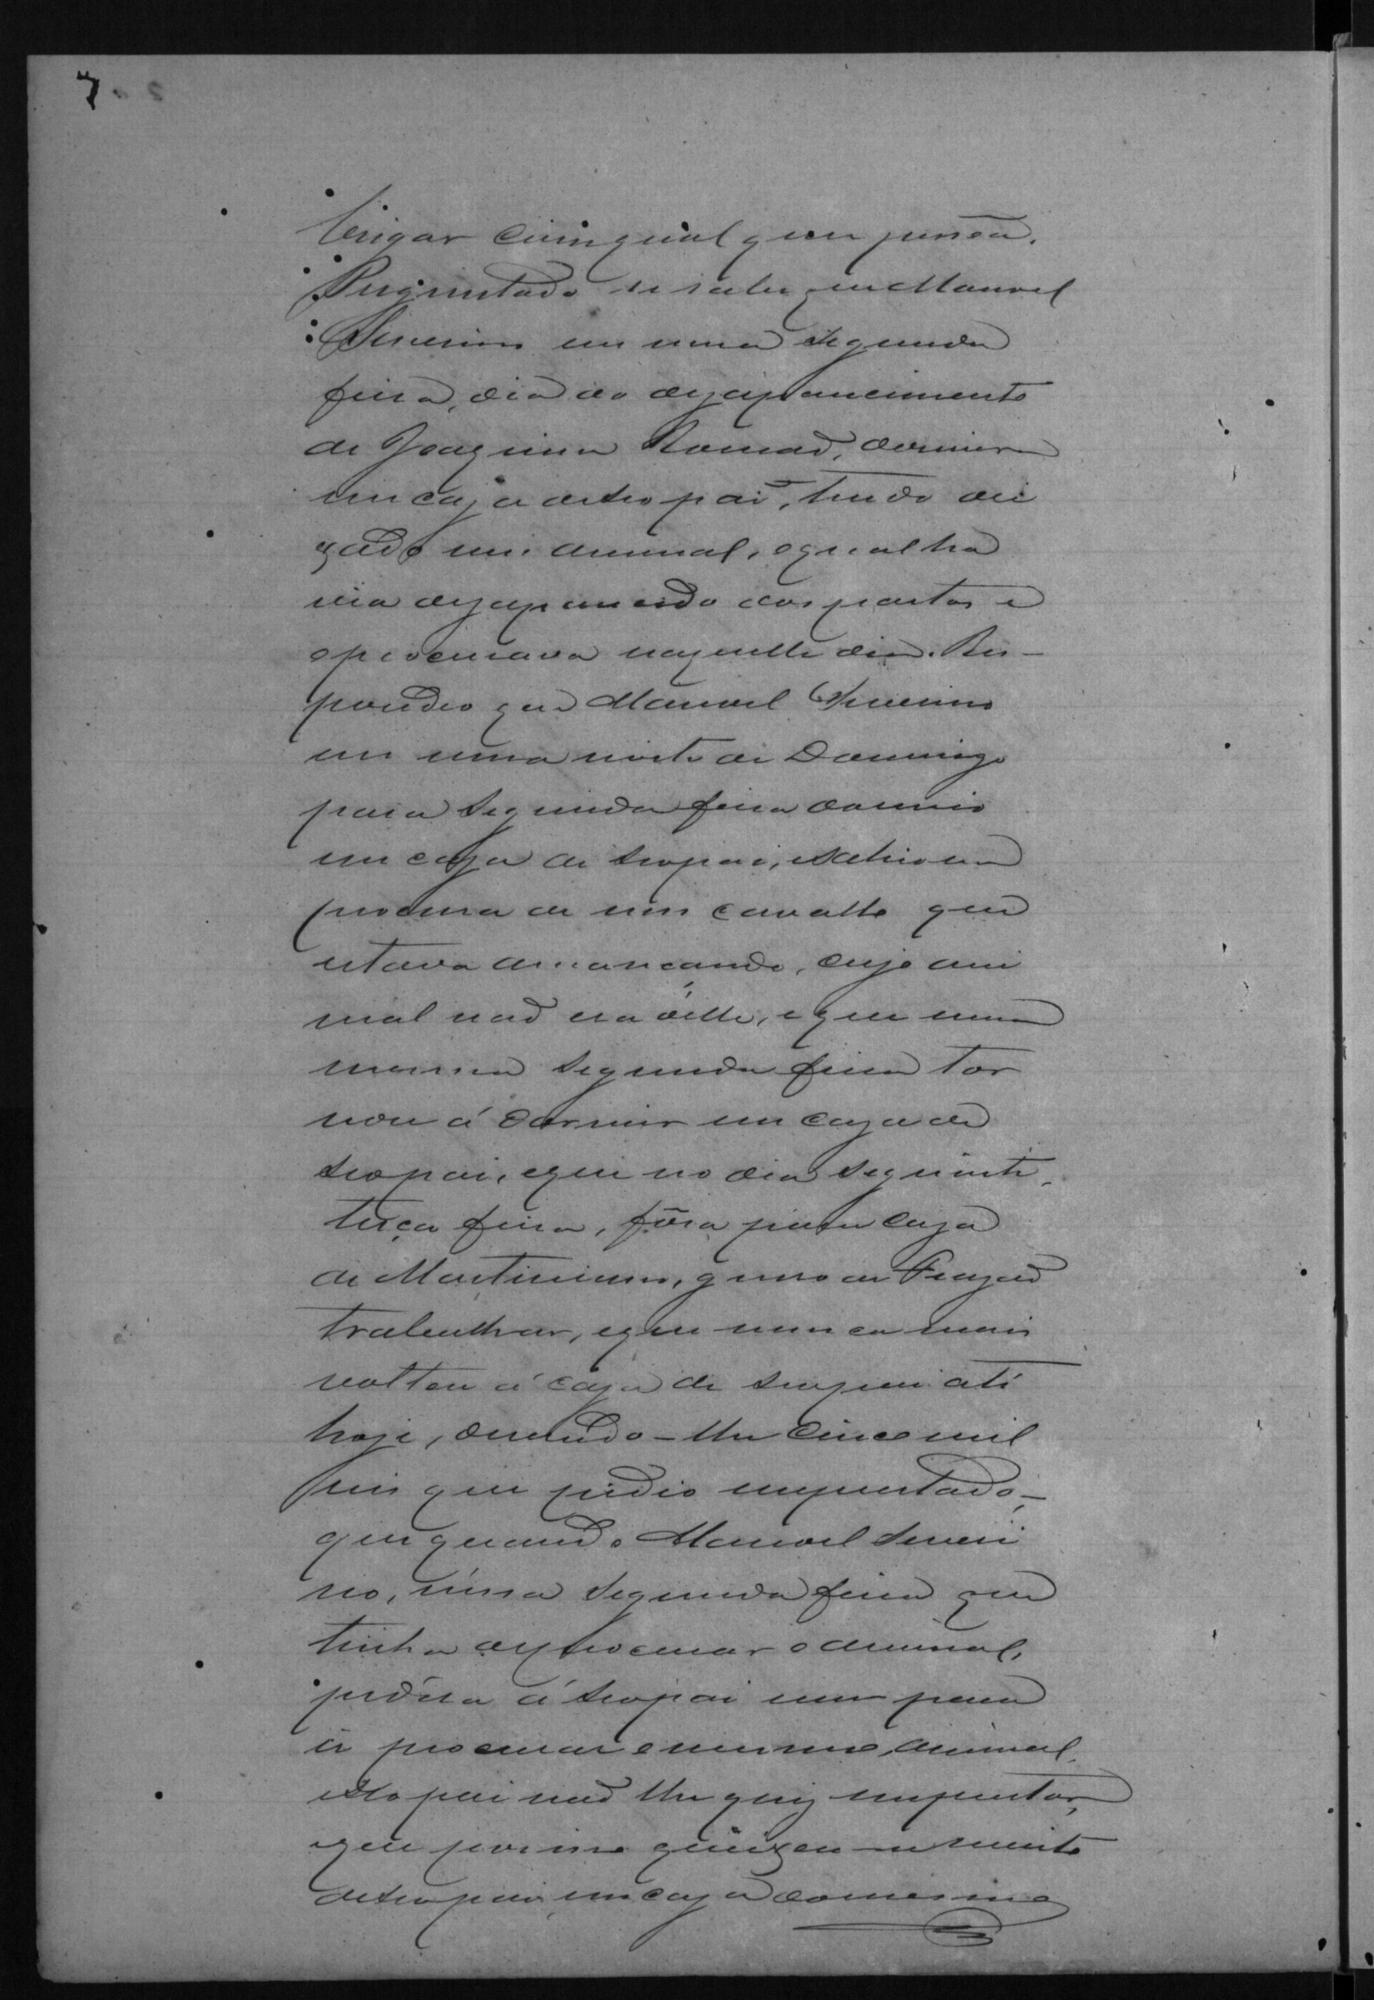 7
brigar com qualquer pessôa.
Perguntado se sabe que Manoel
Severino em uma segunda
feira, dia do dezaparecimento
de Joaquim Romão, dormira
em caza de seo pai, tendo alu
gado um animal, o qual ha
via dezaparecido dos pastos e
o procurava naquelle dia. Res-
pondeo que Manoel Severino
em uma noite de Domingo
para segunda feira dormio
em caza de seo pai, e sahio em
procura de um cavallo que
estava amançando, cujo ani
mal não era délle, e que nessa
mesma segunda feira tor
nou á dormir em caza de
seo pai, e que no dia seguinte,
terça feira, fôra para caza
de Martiniano, genro de Frazão
trabalhar, e que nunca mais
voltou á caza de seo pai até
hoje, devendo-lhe cinco mil
reis que pedio emprestado,-
que quando Manoel Severi
no, nessa segunda feira que
tinha de procurar o animal,
pedira á seo pai um para
ir procurar o mesmo animal,
e seo pai não lhe quiz emprestar,
e que por isso queixou-se muito
de seo pai, em caza do mesmo